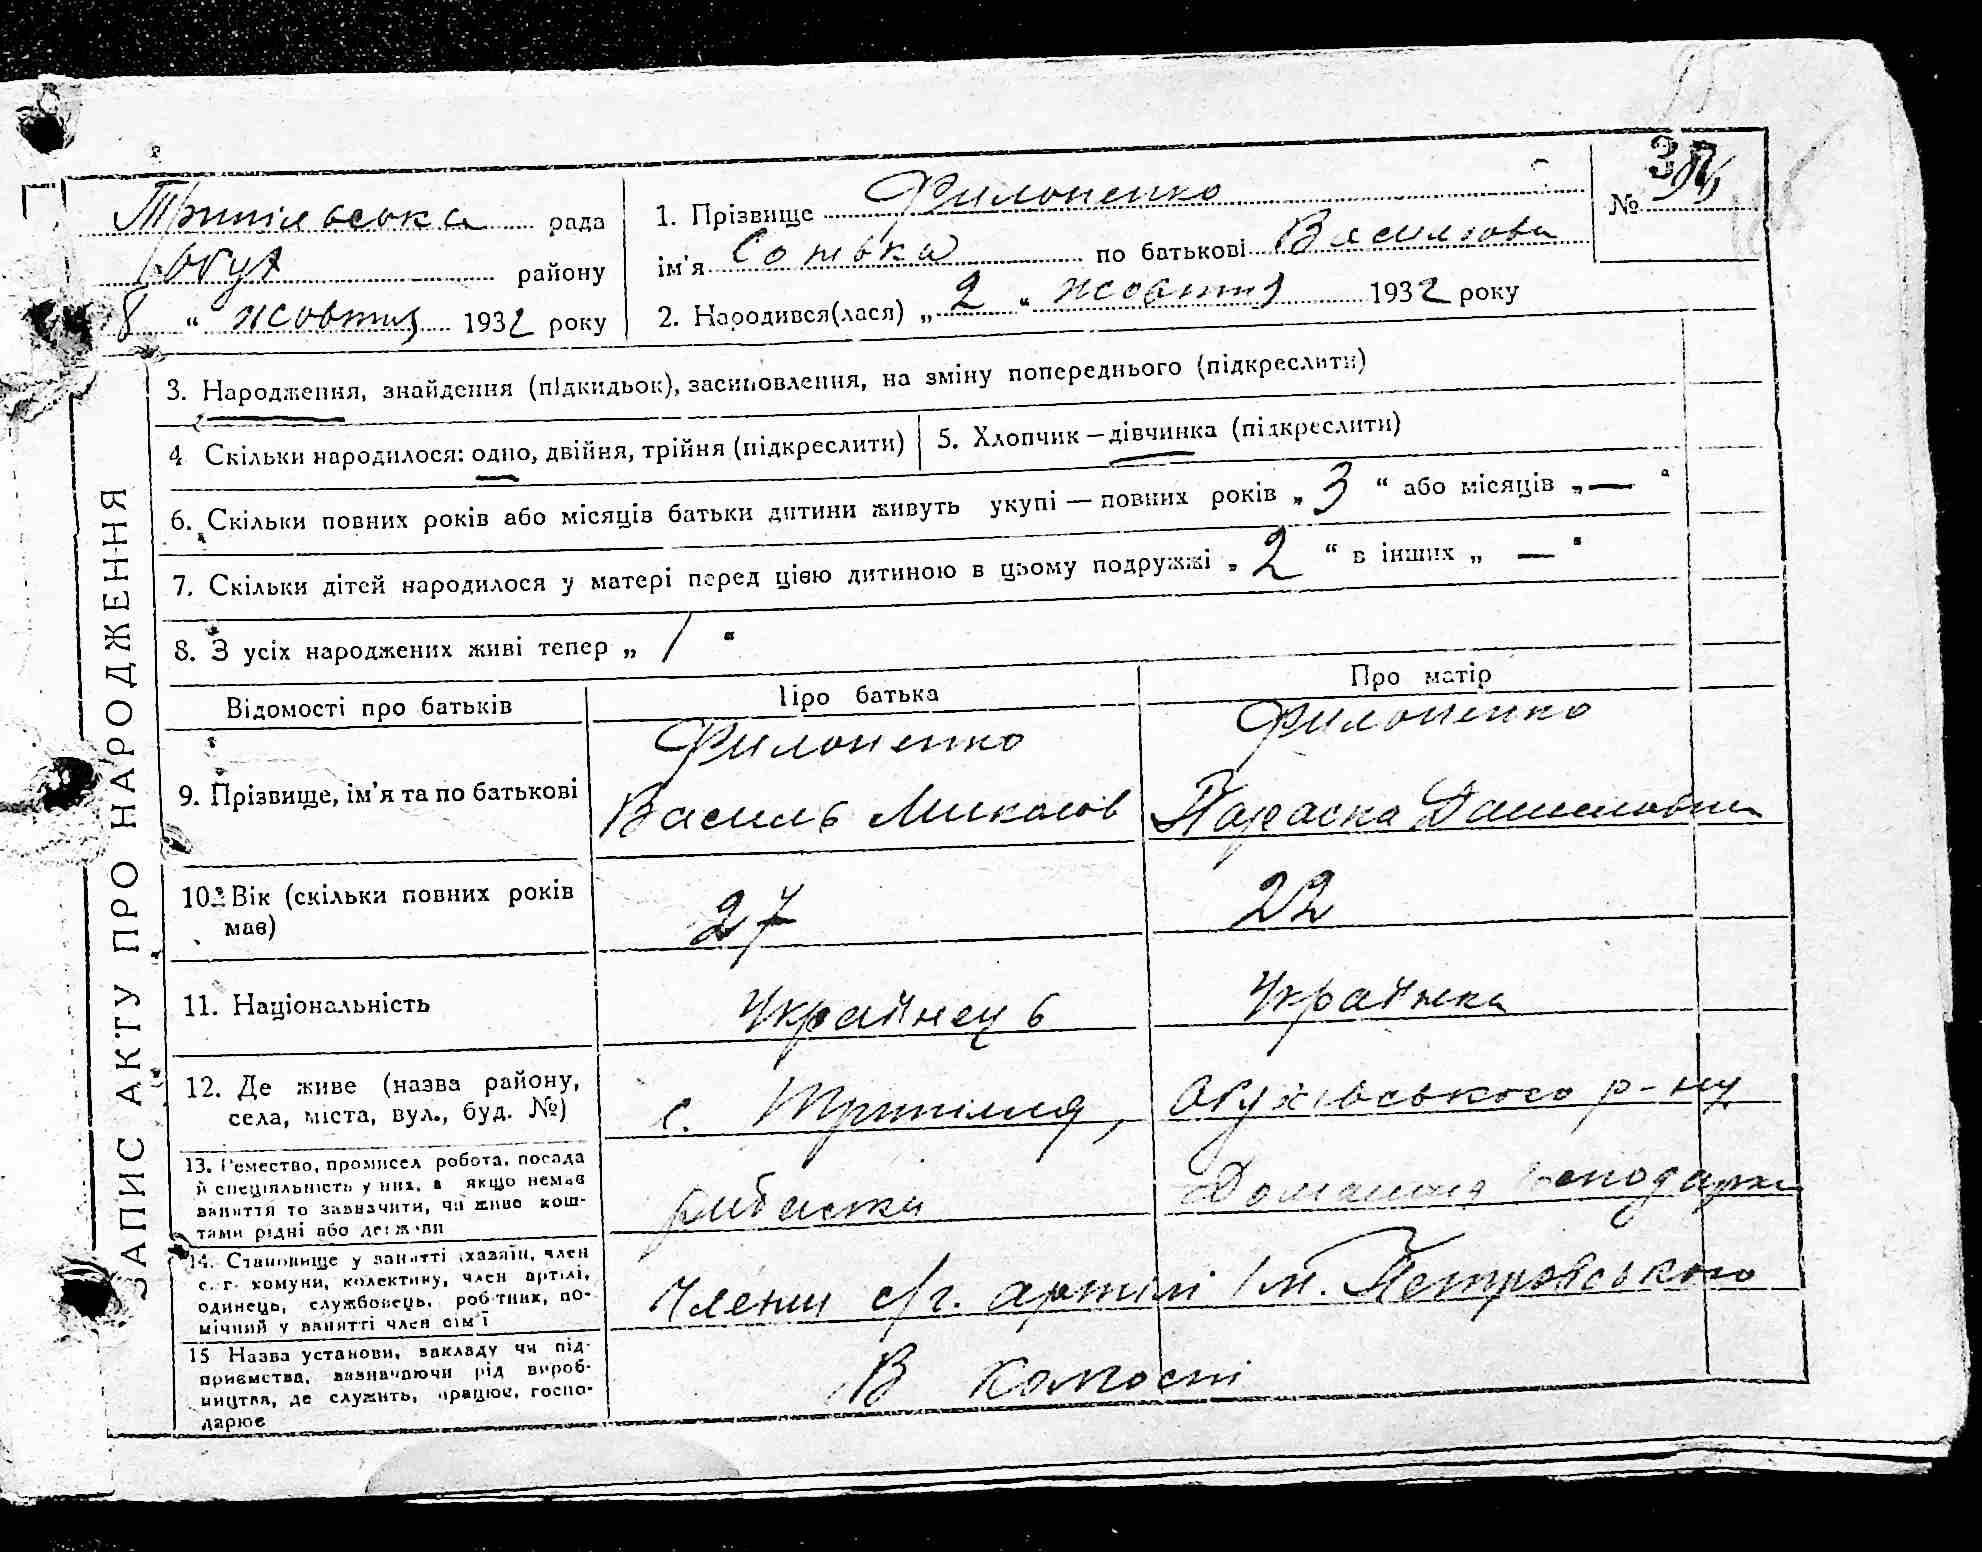 №
Трипільська рада
Обух району
8 " жовтня 1932 року
1. Прізвище Филоненко
ім'я Сонька по батькові Василівна
2. Народився(лася) „ 2 " жовтня 1932 року
ЗАПИС АКТУ ПРО НАРОДЖЕННЯ
3. Народження, знайдення (підкидьок), засиновлення, на зміну попереднього (підкреслити)
4 Скільки народилося: одно, двійня, трійня (підкреслити)
5. Хлопчик — дівчинка (підкреслити)
6. Скільки повних років або місяців батьки дитини живуть укупі — повних років „ 3 " або місяців „ — "
7. Скільки дітей народилося у матері перед цією дитиною в цьому подружжі „ 2 " в інших „ — "
8. З усіх народжених живі тепер „ 1 "
Відомості про батьків
Про батька
Про матір
9. Прізвище, ім'я та по батькові
Филоненко
Василь Миколов
Филоненко
Параска Даниловна
10. Вік (скільки повних років
має)
27
22
11. Національність
Українець
Українка
12. Де живе (назва району,
села, міста, вул., буд. №)
с. Трипілля, Обухівського р-ну
13. Ремество, промисел робота, посада
й спеціяльність у них, а якщо немає
заняття то зазначити, чи живе кош-
тами рідні або держави
рибалка
Домашня господарка
14. Становище у занятті (хазяїн, член
с.-г. комуни, колективу, член артілі,
одинець, службовець, робітник, по-
мічний у занятті член сім'ї
Члени с/г. артілі ім. Петровського
15 Назва установи, закладу чи під-
приємства, зазначаючи рід вироб-
ництва, де служить, працює, госпо-
дарює
В колгоспі